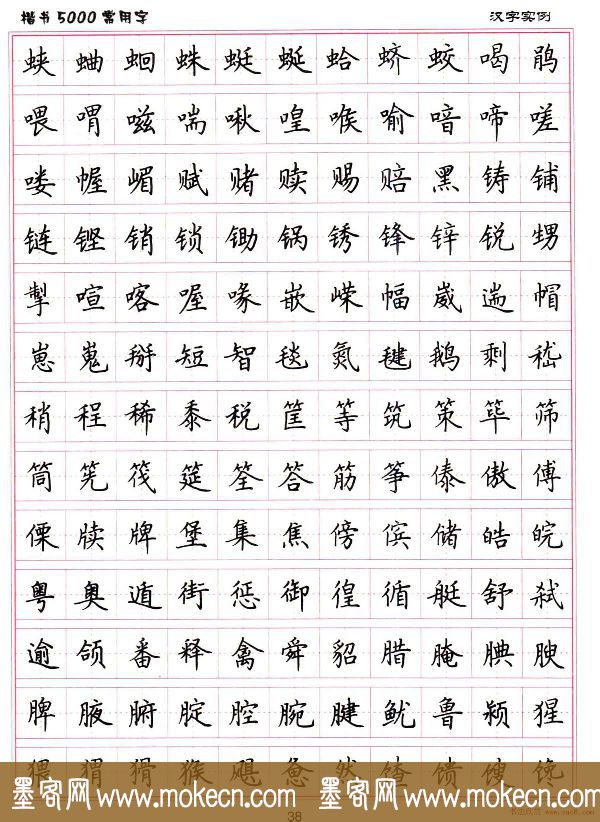 楷书5000常用字 汉字实例
蛱蛐蛔蛛蜓蜒蛤蛴蛟喝鹃
喂喟嗞喘啾喤喉喻喑啼嗟
喽幄嵋赋赌赎赐赔黑铸铺
链铿销锁锄锅锈锋锌锐甥
掣喧喀喔喙嵌嵘幅崴遄帽
崽嵬掰短智毯氮毽鹅剩嵇
稍程稀黍税筐等筑策筚筛
筒筅筏筵筌答筋筝傣傲傅
傈牍牌堡集焦傍傧储皓皖
粤奥遁街惩御徨循艇舒弑
逾颌番释禽舜貂腊腌腆腴
脾腋腑腚腔腕腱鱿鲁颍猩
猥猬猾猴飓惫然馇馈馊馋
墨客网 www.mokecn.com 墨客网 www.mokecn.com
38